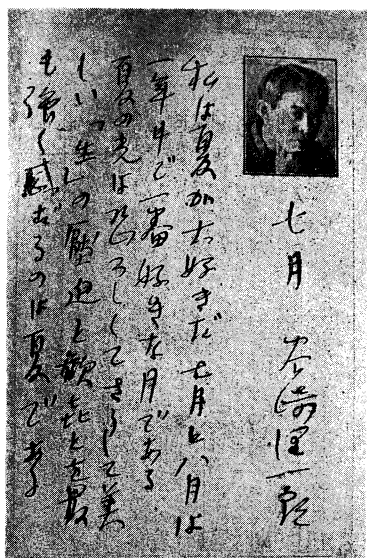 七月　谷崎潤一郎
私は夏が大好きだ 七月と八月は
一年中で一番好きな月である
夏の光は恐ろしくてさうして美
しい「生」の壓迫と歡喜とを最
も強く感ずるのは夏である